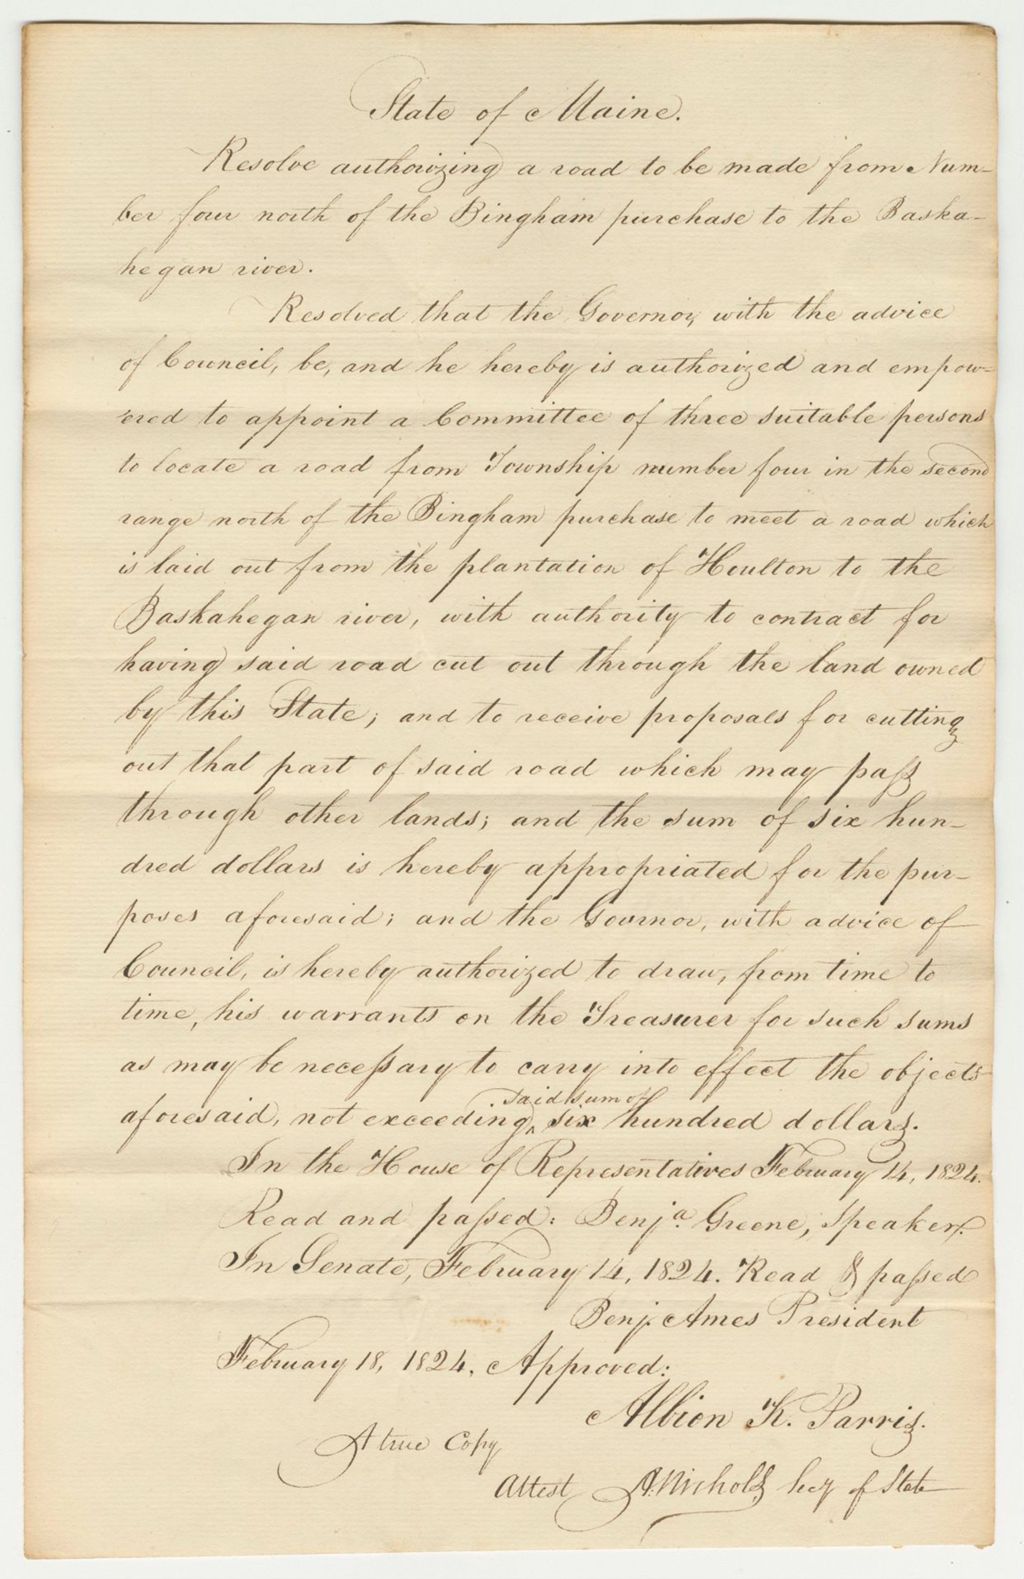 State of Maine.
Resolve authorizing a road to be made from Num-
ber four north of the Bingham purchase to the Baska-
hegan river.
Resolved that the Governor, with the advice
of Council, be, and he hereby is authorized and empow-
ered to appoint a Committee of three suitable persons
to locate a road from Township number four in the second
range north of the Bingham purchase to meet a road which
is laid out from the plantation of Houlton to the
Baskahegan river, with authority to contract for
having said road cut out through the land owned
by this State; and to receive proposals for cutting
out that part of said road which may pass
through other lands; and the sum of six hun-
dred dollars is hereby appropriated for the pur-
poses aforesaid; and the Governor, with advice of
Council, is hereby authorized to draw, from time to
time, his warrants on the Treasurer for such sums
as may be necessary to carry into effect the objects
aforesaid, not exceeding ^said sum of six hundred dollars.
In the House of Representatives February 14, 1824.
Read and passed: Benja. Greene, Speaker.
In Senate, February 14, 1824. Read & passed
Benj. Ames President
February 18, 1824. Approved:
Albion K. Parris.
A true Copy
Attest A. Nichols Secy of State